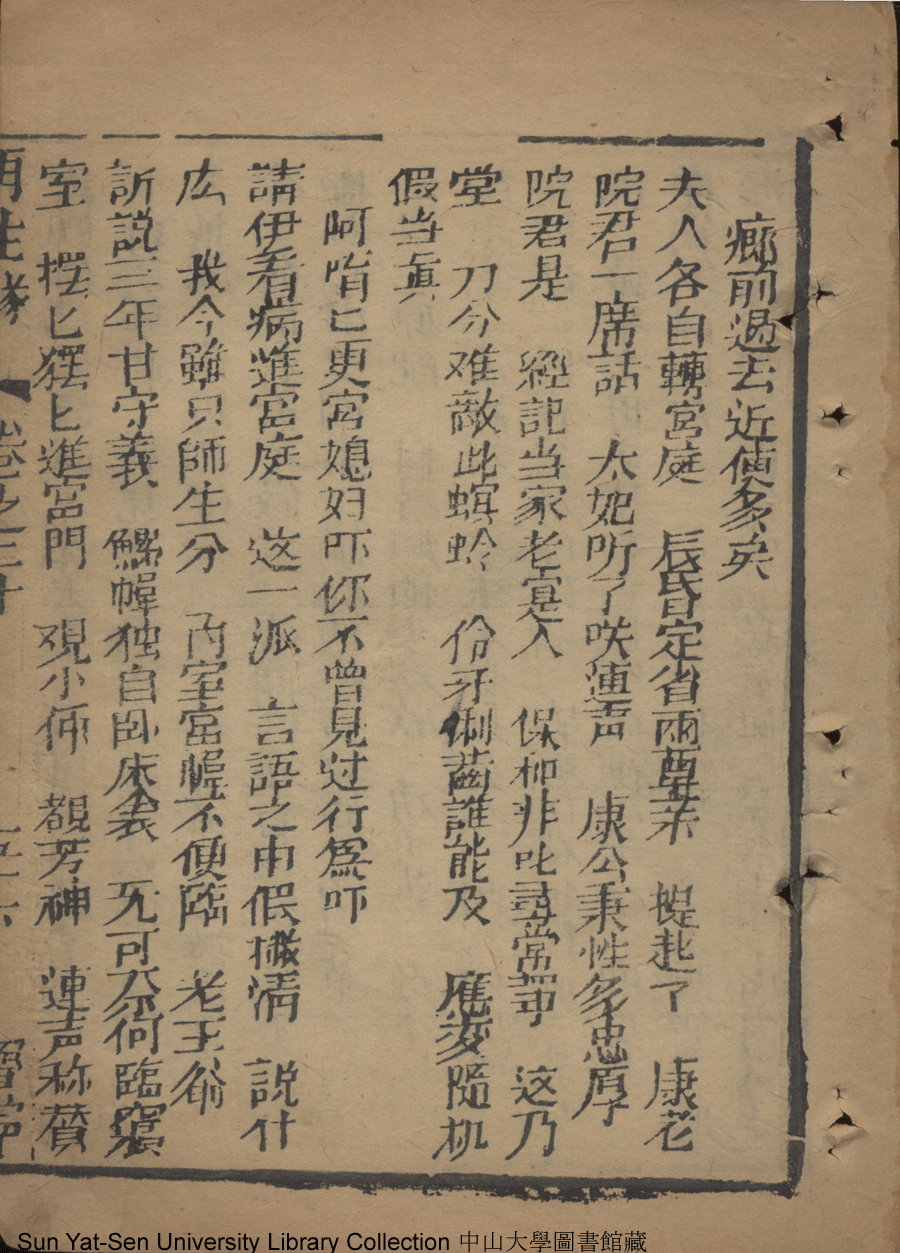 廊前過去近使多矣
夫人各自轉宮庭 辰昏定省兩尊亲 提起了 康老
院君一席話 太妃听了咲連声 康公秉性多忠厚
院君是 經記当家老寔人 保和非比尋常輩 这乃
堂 刀分难敵此螟蛉 伶牙俐齒誰能及 應变隨机
假当真
阿唷匕更宮媳妇吓你不曾見过行爲吓
請伊看病進宮庭 这一派 言語之中假撇清 說什
広 我今雖只師生分 內室宮幃不便臨 老王爺
訴説三年甘守義 鮫幃独自卧床衾 无可奈何臨寢
室 摆匕摆匕進宮門 观小像 覩芳神 連声称贊
再生緣 卷之三十
Sun Yat-Sen University Library Collection 中山大學圖書館藏